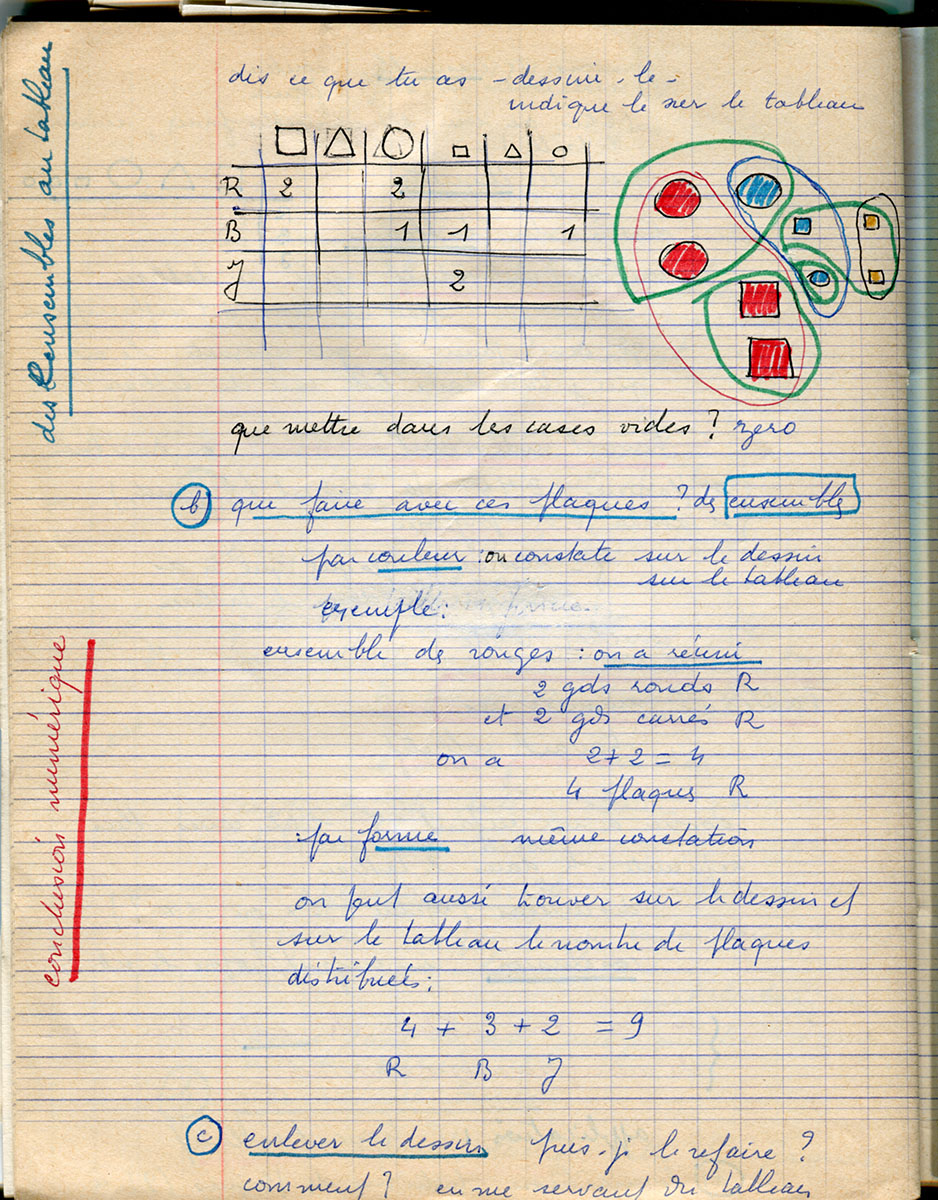 des ensembles au tableau
dis ce que tu as - dessine-le -
indique le sur le tableau
R 2 2
B 1 1 1
J 2
que mettre dans les cases vides ? zero
b) que faire avec ces plaques ? des ensembles
par couleur : on constate sur le dessin
sur le tableau
exemple :
ensemble des rouges : on a réuni
2 gds ronds R
et 2 gds carrés R
on a 2 + 2 = 4
4 plaques R
conclusion numérique
: par forme même constation
on peut aussi trouver sur le dessin et
sur le tableau le nombre de plaques
distribuées :
4 + 3 + 2 = 9
R B J
c) enlever le dessin puis-je le refaire ?
comment ? en me servant du tableau